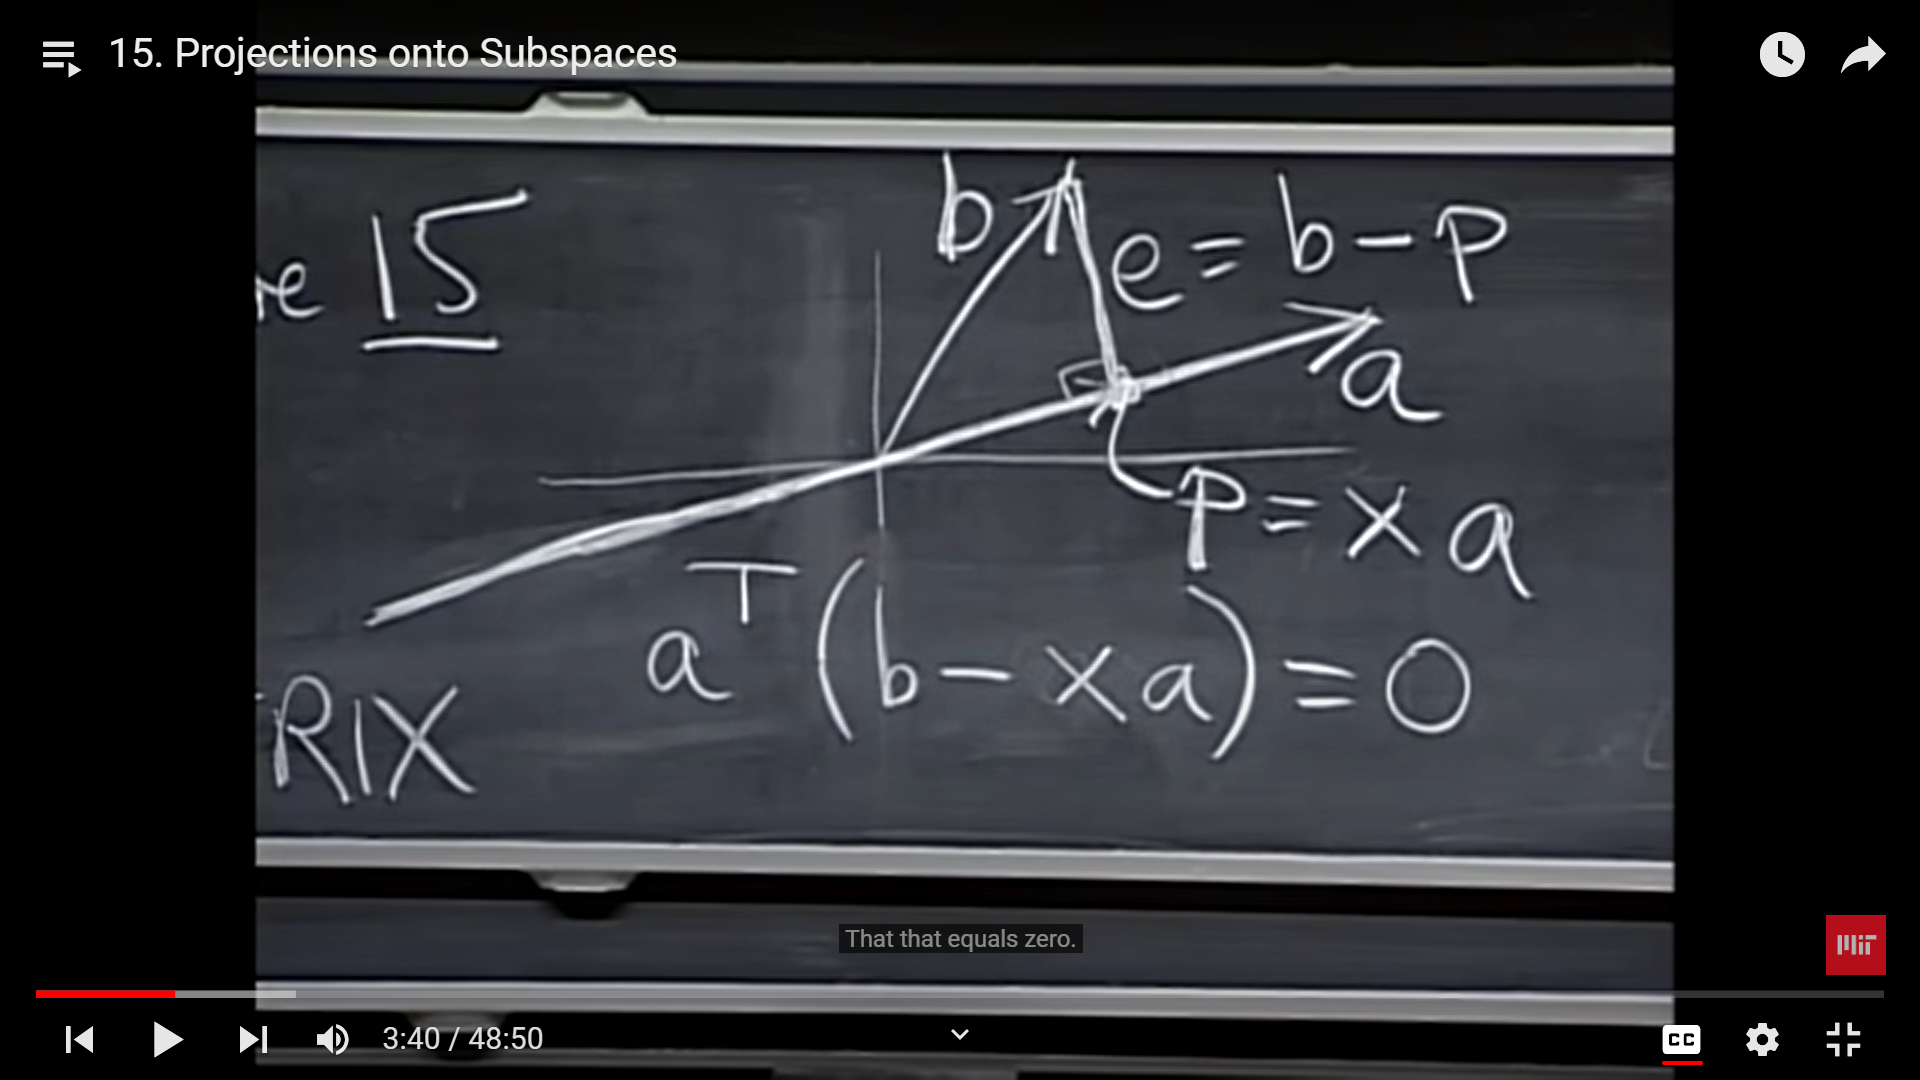 15. Projections onto Subspaces
15
b
e = b - p
a
p = x a
aᵀ (b - x a) = 0
RIX
That that equals zero.
MIT
3:40 / 48:50
CC